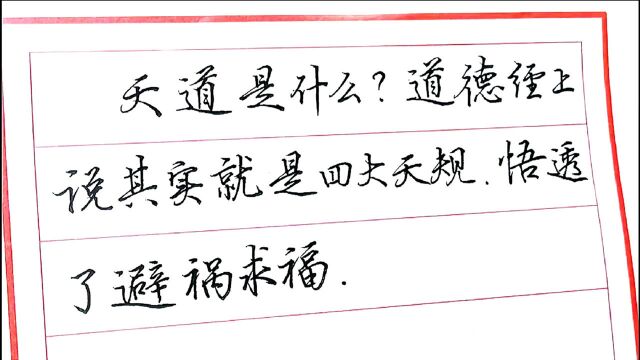 天道是什么?道德经上
说其实就是四大天规.悟透
了避祸求福.